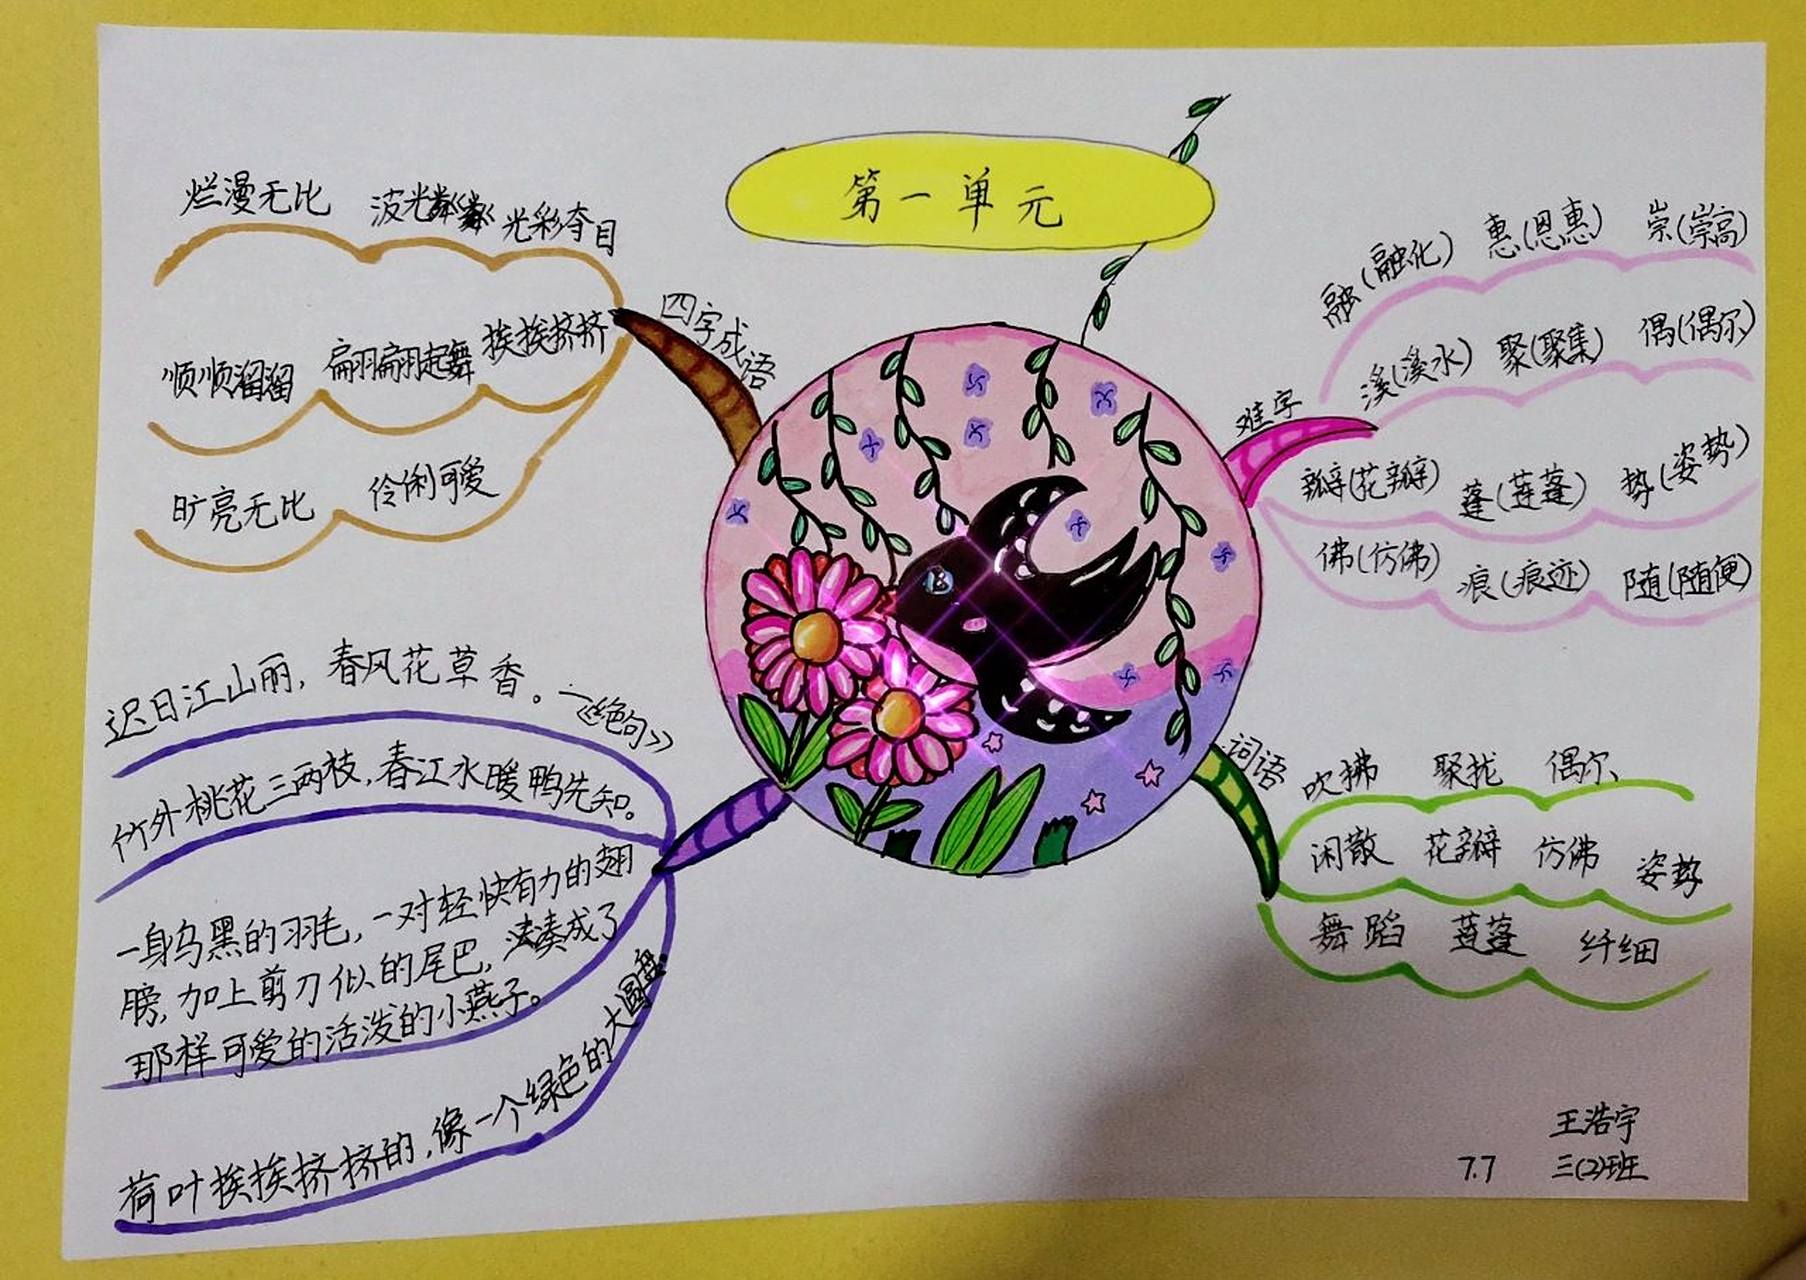 第一单元
四字成语
烂漫无比 波光粼粼 光彩夺目
顺顺溜溜 翩翩起舞 挨挨挤挤
旷亮无比 伶俐可爱
难字
融(融化) 惠(恩惠) 崇(崇高)
溪(溪水) 聚(聚集) 偶(偶尔)
瓣(花瓣) 蓬(莲蓬) 势(姿势)
佛(仿佛) 痕(痕迹) 随(随便)
迟日江山丽，春风花草香。《绝句》
竹外桃花三两枝，春江水暖鸭先知。
一身乌黑的羽毛，一对轻快有力的翅
膀，加上剪刀似的尾巴，凑成了
那样可爱的活泼的小燕子。
荷叶挨挨挤挤的，像一个绿色的大圆盘。
词语
吹拂 聚拢 偶尔
闲散 花瓣 仿佛 姿势
舞蹈 莲蓬 纤细
王浩宇
7.7 三(2)班